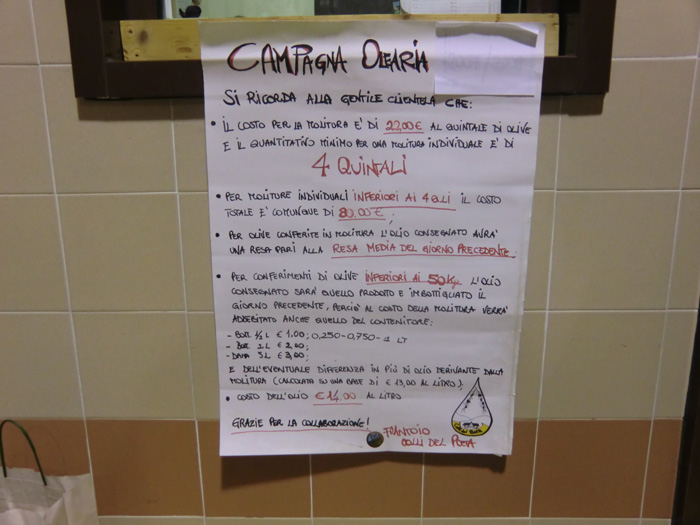 CAMPAGNA OLEARIA
SI RICORDA ALLA GENTILE CLIENTELA CHE:
• IL COSTO PER LA MOLITURA E' DI 22,00€ AL QUINTALE DI OLIVE
E IL QUANTITATIVO MINIMO PER UNA MOLITURA INDIVIDUALE E' DI
4 QUINTALI
• PER MOLITURE INDIVIDUALI INFERIORI AI 4 Q.LI IL COSTO
TOTALE E' COMUNQUE DI 80,00€;
• PER OLIVE CONFERITE IN MOLITURA L'OLIO CONSEGNATO AVRA'
UNA RESA PARI ALLA RESA MEDIA DEL GIORNO PRECEDENTE.
• PER CONFERIMENTI DI OLIVE INFERIORI AI 50 Kg. L'OLIO
CONSEGNATO SARA' QUELLO PRODOTTO E IMBOTTIGLIATO IL
GIORNO PRECEDENTE, PERCIO' AL COSTO DELLA MOLITURA VERRA'
ADDEBITATO ANCHE QUELLO DEL CONTENITORE:
- BOTT. ½ L € 1.00; 0,250-0,750-1 LT
- BOT. 1 L € 2,00;
- DAMA 5 L € 3,00;
E DELL'EVENTUALE DIFFERENZA IN PIÙ DI OLIO DERIVANTE DALLA
MOLITURA (CALCOLATA SU UNA BASE DI € 13,00 AL LITRO).
• COSTO DELL'OLIO € 14,00 AL LITRO
GRAZIE PER LA COLLABORAZIONE!
FRANTOIO
COLLI DEL POETA